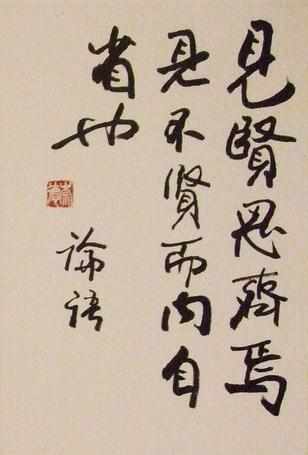 見賢思齊焉
見不賢而內自
省也
論語